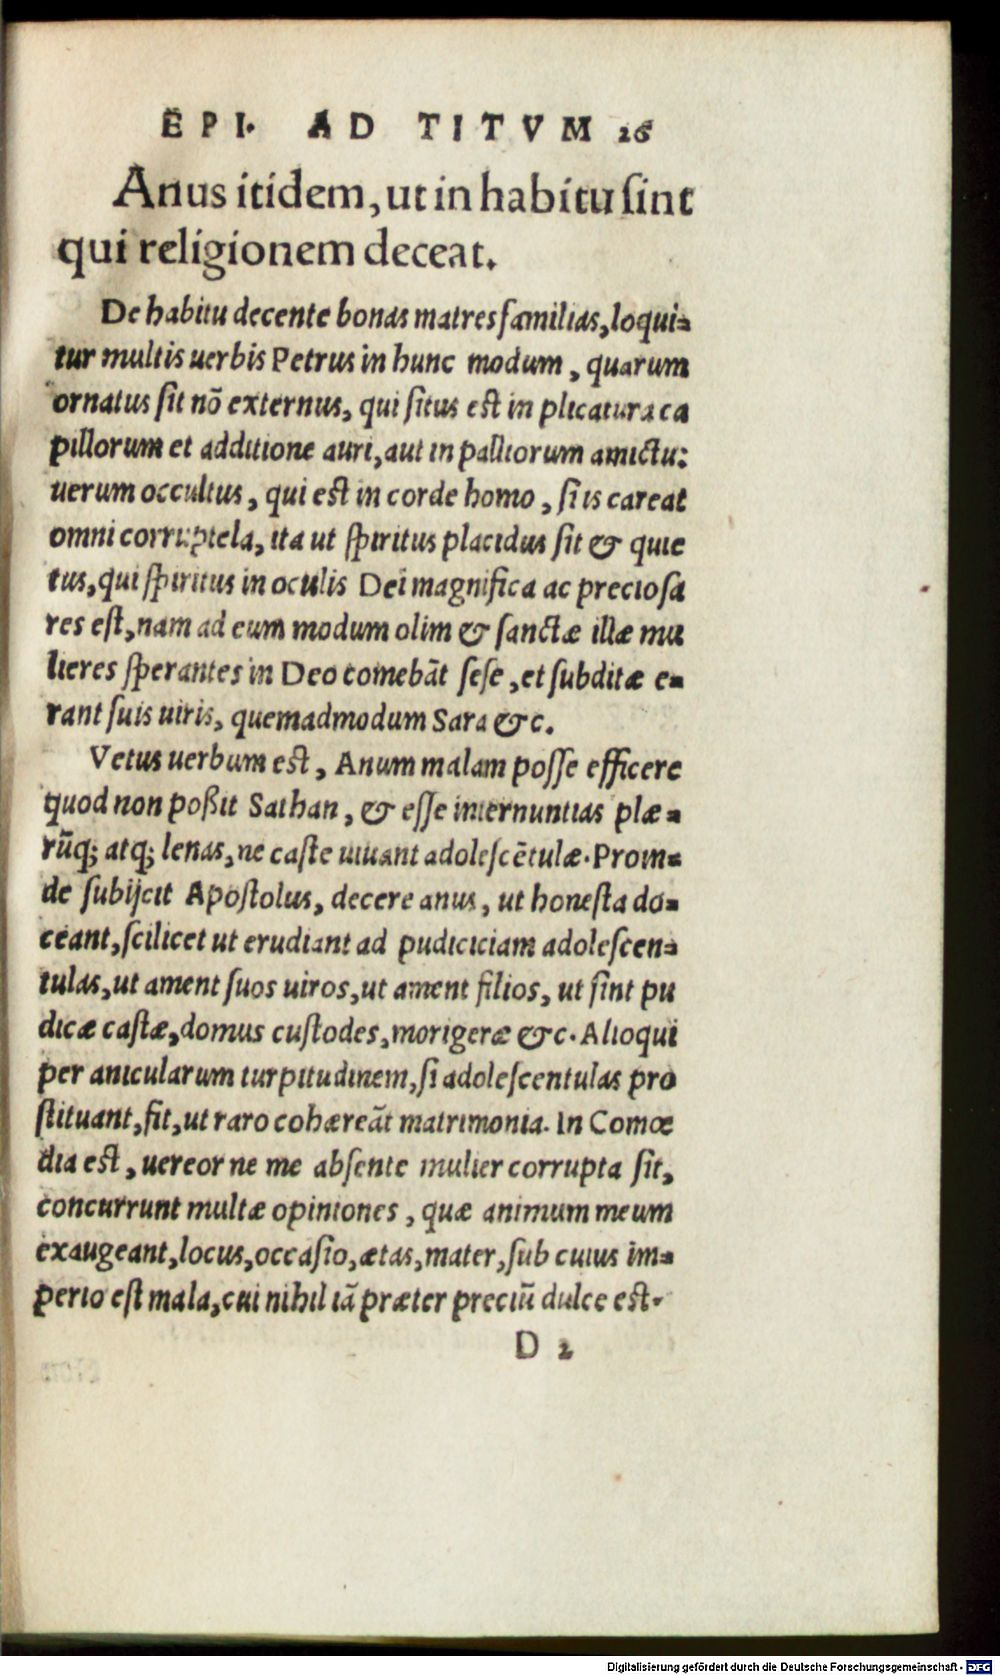 EPI. AD TITVM 26
Anus itidem, ut in habitu sint
qui religionem deceat.
De habitu decente bonas matres familias, loqui-
tur multis uerbis Petrus in hunc modum, quarum
ornatus sit nō externus, qui situs est in plicatura ca
pillorum et additione auri, aut in palliorum amictu:
uerum occultus, qui est in corde homo, si is careat
omni corruptela, ita ut spiritus placidus sit & quie
tus, qui spiritus in oculis Dei magnifica ac preciosa
res est, nam ad eum modum olim & sanctæ illæ mu
lieres sperantes in Deo comebāt sese, et subditæ e-
rant suis uiris, quemadmodum Sara &c.
Vetus uerbum est, Anum malam posse efficere
quod non poßit Sathan, & esse internuntias plæ-
rūq; atq; lenas, ne caste uiuant adolescētulæ. Proin-
de subijcit Apostolus, decere anus, ut honesta do-
ceant, scilicet ut erudiant ad pudiciciam adolescen-
tulas, ut ament suos uiros, ut ament filios, ut sint pu
dicæ castæ, domus custodes, morigeræ &c. Alioqui
per anicularum turpitudinem, si adolescentulas pro
stituant, fit, ut raro cohæreāt matrimonia. In Comœ
dia est, uereor ne me absente mulier corrupta sit,
concurrunt multæ opiniones, quæ animum meum
exaugeant, locus, occasio, ætas, mater, sub cuius im-
perio est mala, cui nihil iā præter preciū dulce est.
D 2
Digitalisierung gefördert durch die Deutsche Forschungsgemeinschaft - DFG